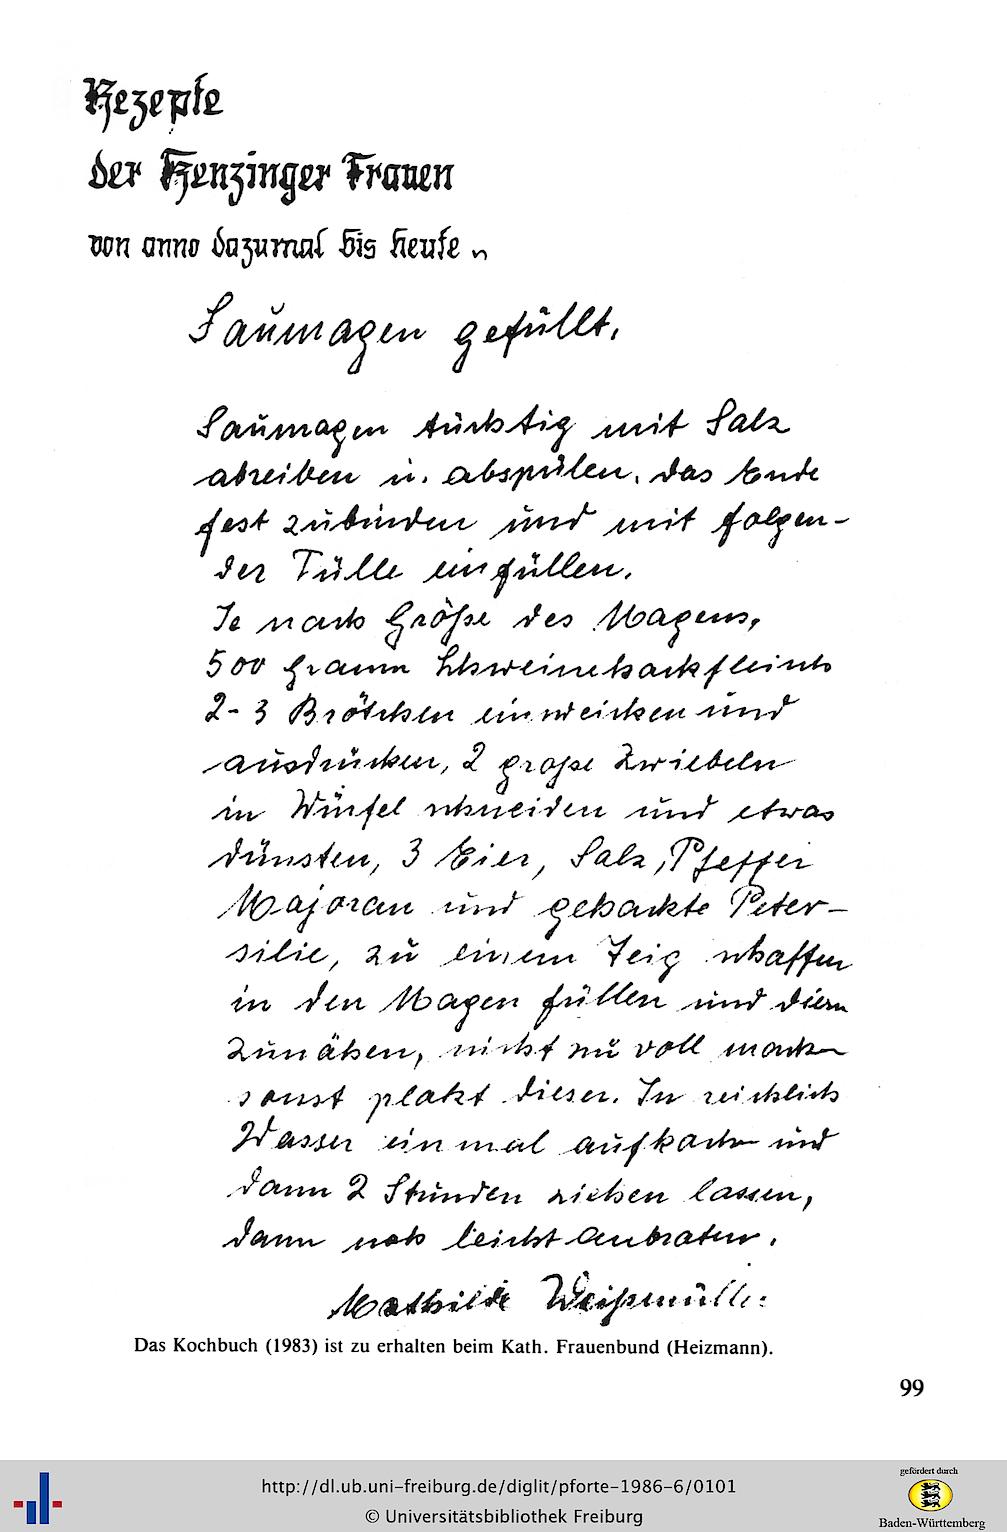 Rezepte
der Kenzinger Frauen
von anno dazumal bis heute
Saumagen gefüllt.
Saumagen tüchtig mit Salz
abreiben u. abspülen, das Ende
fest zubinden und mit folgen-
der Fülle einfüllen.
Je nach Größe des Magens,
500 Gramm Schweinehackfleisch
2-3 Brötchen einweichen und
ausdrücken, 2 große Zwiebeln
in Würfel schneiden und etwas
dünsten, 3 Eier, Salz, Pfeffer
Majoran und gehackte Peter-
silie, zu einem Teig schaffen
in den Magen füllen und diesen
zunähen, nicht zu voll machen
sonst platzt dieser. In reichlich
Wasser einmal aufkochen und
dann 2 Stunden ziehen lassen,
dann noch leicht anbraten.
Mathilde Weißmüller
Das Kochbuch (1983) ist zu erhalten beim Kath. Frauenbund (Heizmann).
99
http://dl.ub.uni-freiburg.de/diglit/pforte-1986-6/0101
© Universitätsbibliothek Freiburg
gefördert durch
Baden-Württemberg